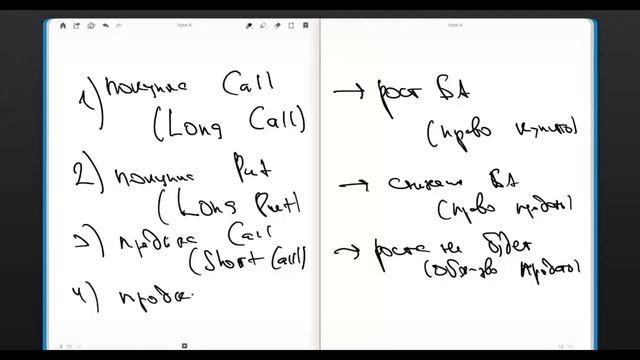 Урок 6
Урок 6
1) покупка Call
(Long Call)
2) покупка Put
(Long Put)
3) продажа Call
(Short Call)
4) прода
→ рост БА
(право купить)
→ снижение БА
(право продать)
→ роста не будет
(обяз-во продать)